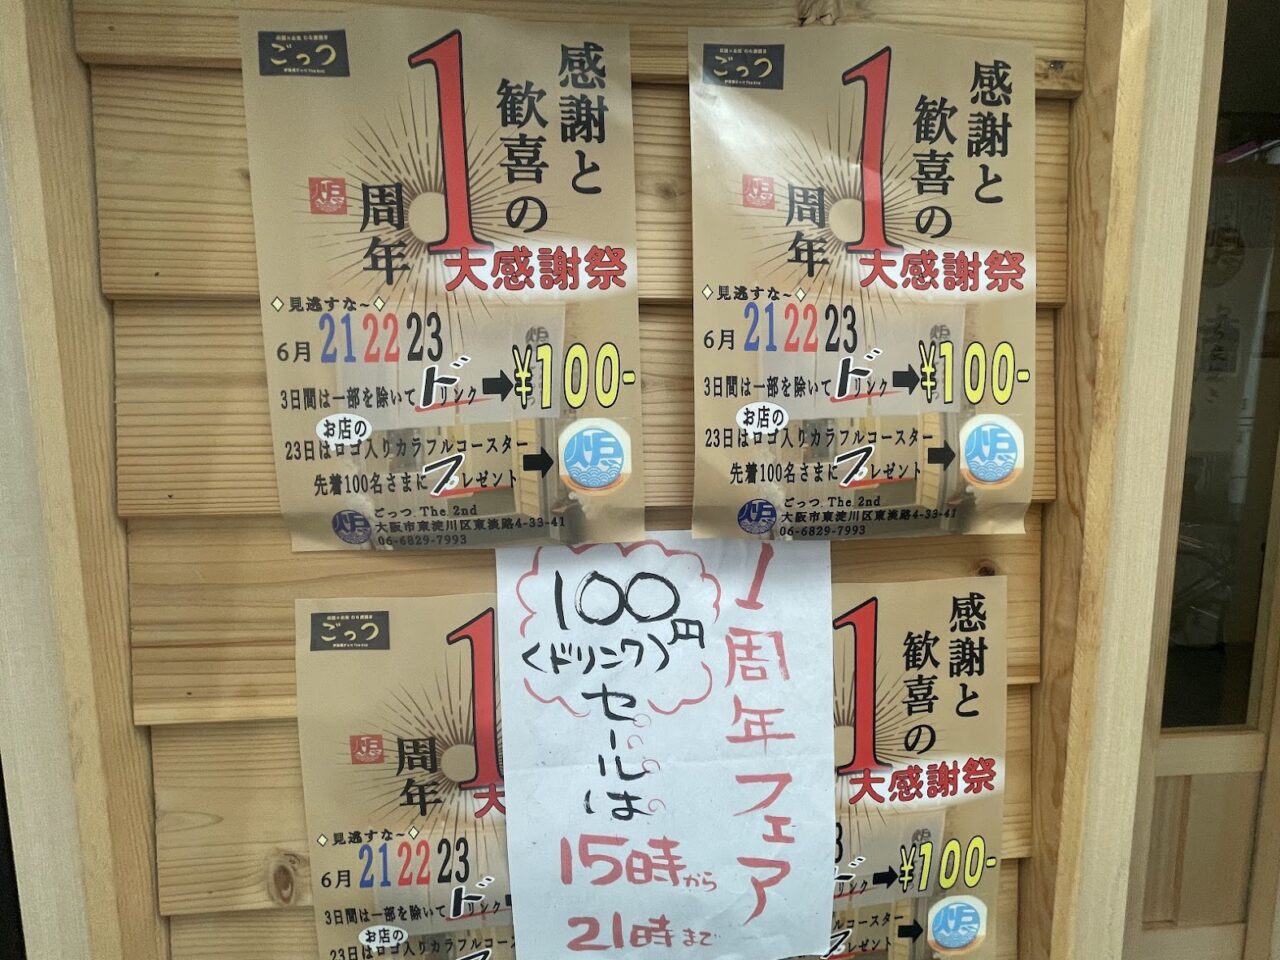 ごっつ
感謝と
歓喜の
1
周年
大感謝祭
見逃すな~
6月 21 22 23
3日間は一部を除いてドリンク ➡ ¥100-
お店の
23日はロゴ入りカラフルコースター
先着100名さまにプレゼント
ごっつ The 2nd
大阪市東淀川区東淡路4-33-41
06-6829-7993
ごっつ
感謝と
歓喜の
1
周年
大感謝祭
見逃すな~
6月 21 22 23
3日間は一部を除いてドリンク ➡ ¥100-
お店の
23日はロゴ入りカラフルコースター
先着100名さまにプレゼント
ごっつ The 2nd
大阪市東淀川区東淡路4-33-41
06-6829-7993
ごっつ
1
周年
見逃すな~
6月 21 22 23
3日間は一部を除いてドリンク
お店の
23日はロゴ入りカラフルコースタ
1周年フェア
100円
(ドリンク)
セールは
15時から
21時まで
感謝と
歓喜の
1
大感謝祭
リンク ➡ ¥100-
コースター
レゼント